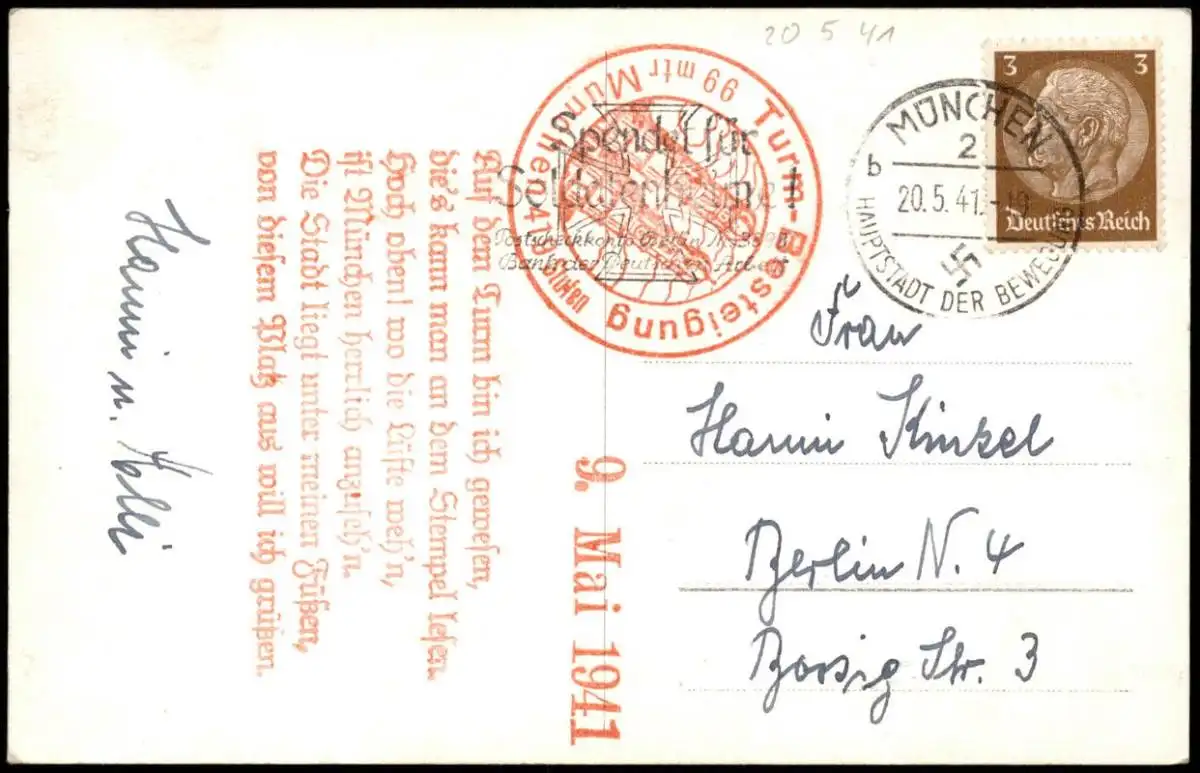 20 5 41
3 3
Deutsches Reich
MÜNCHEN
2
b
20.5.41.
HAUPTSTADT DER BEWEGUNG
Spendet für
Postscheckkonto Berlin
Bank der Deutschen Arbeit
Turm-Besteigung
München
99 mtr
Auf dem Turm bin ich gewesen,
die's kann man an dem Stempel lesen.
Hoch oben! wo die Lüfte weh'n,
ist München herrlich anzuseh'n.
Die Stadt liegt unter meinen Füßen,
von diesem Platz aus will ich grüßen.
9. Mai 1941
Hanni u.
Frau
Hanni Kinzel
Berlin N. 4
Borsig Str. 3